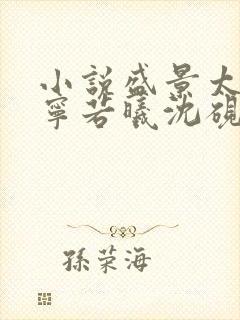 小说盛景太
寧若曦沈硯
孫荣海